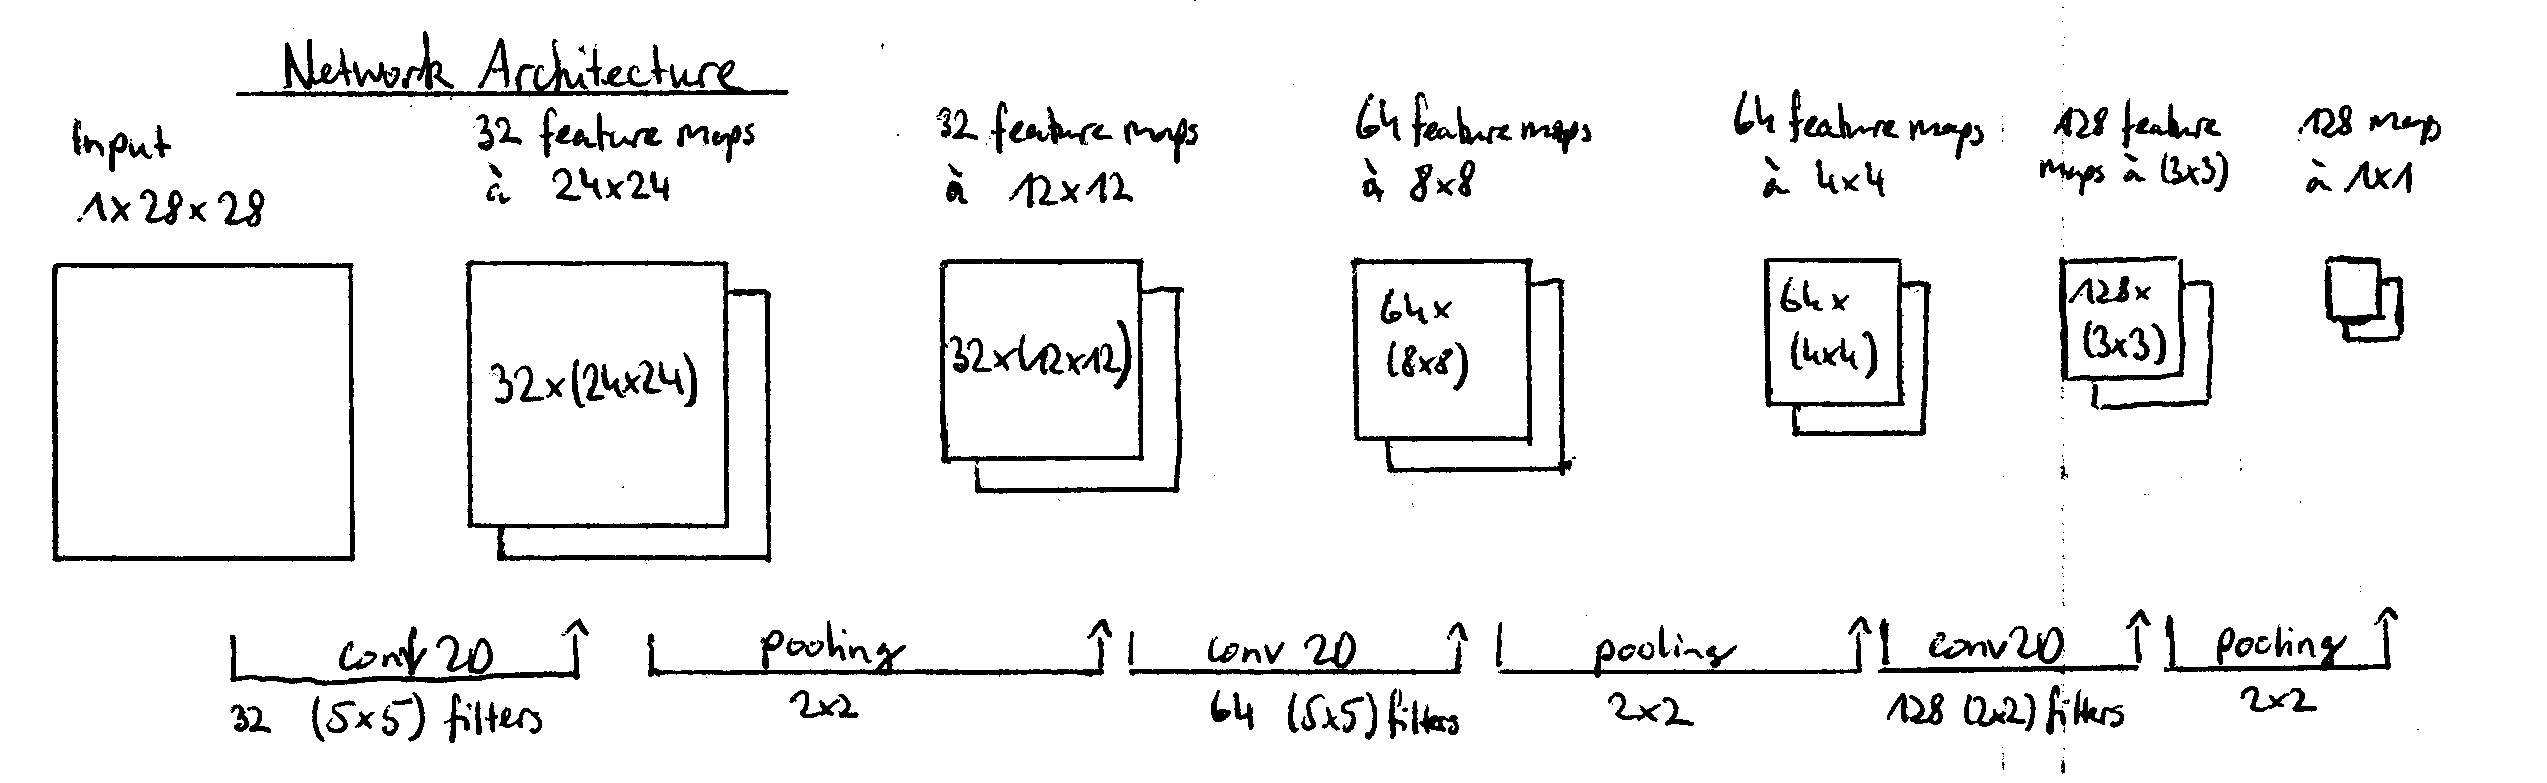 Network Architecture
Input
1x28x28
32 feature maps
à 24x24
32 feature maps
à 12x12
64 feature maps
à 8x8
64 feature maps
à 4x4
128 feature
maps à (3x3)
128 maps
à 1x1
32x(24x24)
32x(12x12)
64x
(8x8)
64x
(4x4)
128x
(3x3)
conv 2D
32 (5x5) filters
pooling
2x2
conv 2D
64 (5x5) filters
pooling
2x2
conv2D
128 (2x2) filters
pooling
2x2